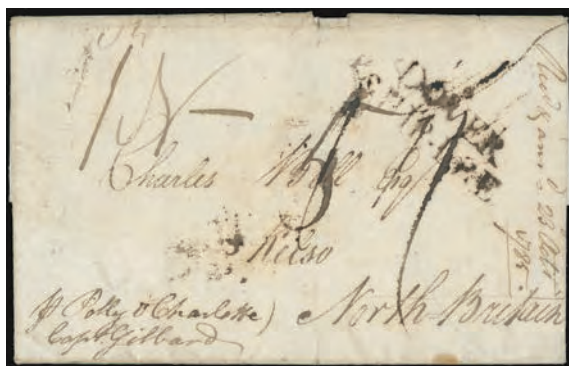 1N
DOVER
SHIP LRE
Charles Bill Esqr
Kelso
North Britain
pr Polly & Charlotte)
Capt. Gilbard
23 Octr
1785.